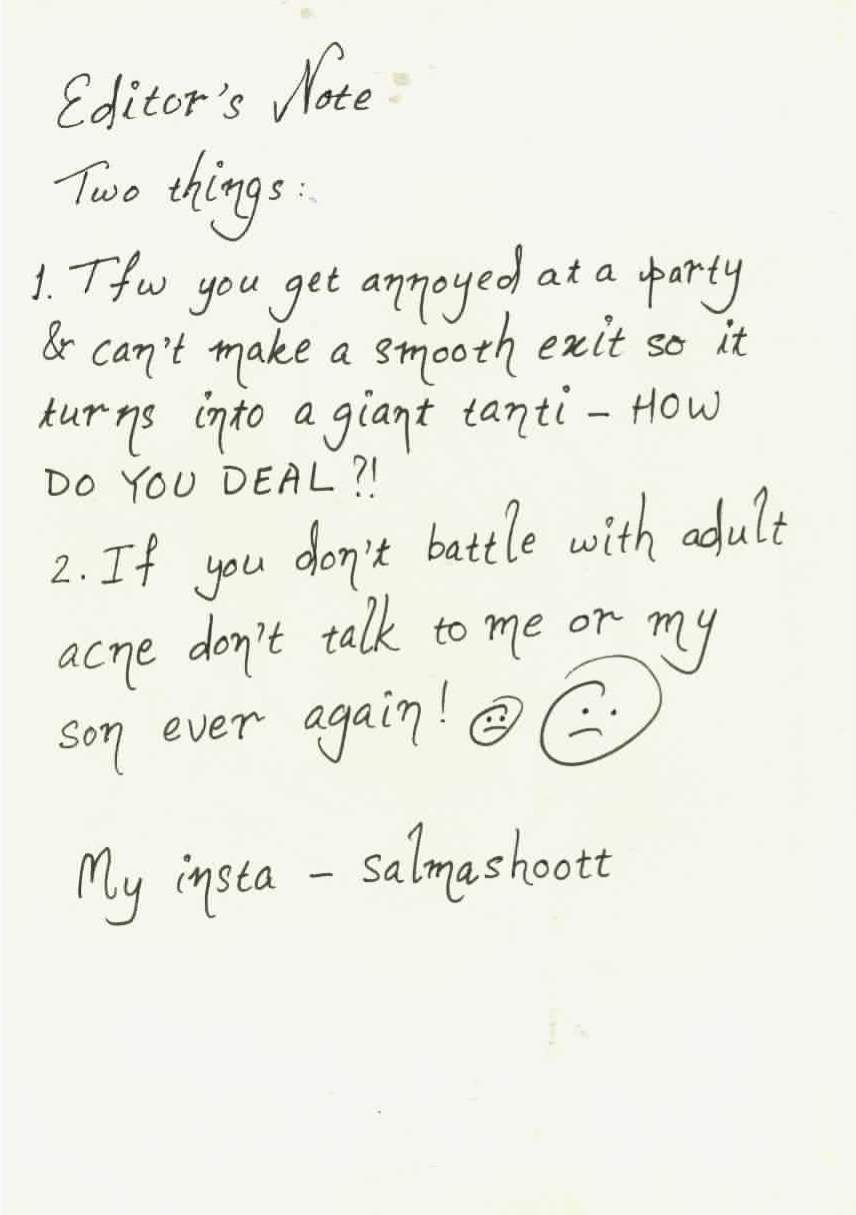 Editor's Note
Two things:
1. Tfw you get annoyed at a party
& can't make a smooth exit so it
turns into a giant tanti - HOW
DO YOU DEAL?!
2. If you don't battle with adult
acne don't talk to me or my
son ever again!
My insta - salmashoott